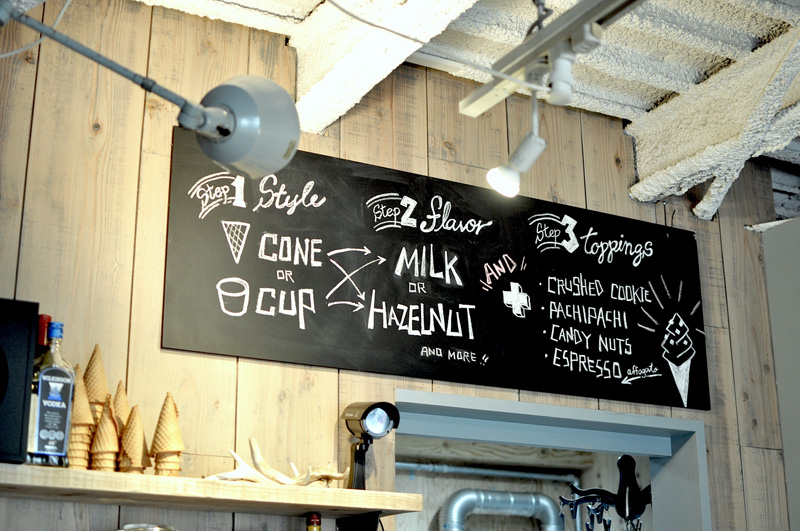 Step 1 Style
CONE
OR
CUP
Step 2 flavor
MILK
OR
HAZELNUT
AND MORE!!
"AND"
Step 3 toppings
· CRUSHED COOKIE
· PACHIPACHI
· CANDY NUTS
· ESPRESSO affogato
WILKINSON
VODKA